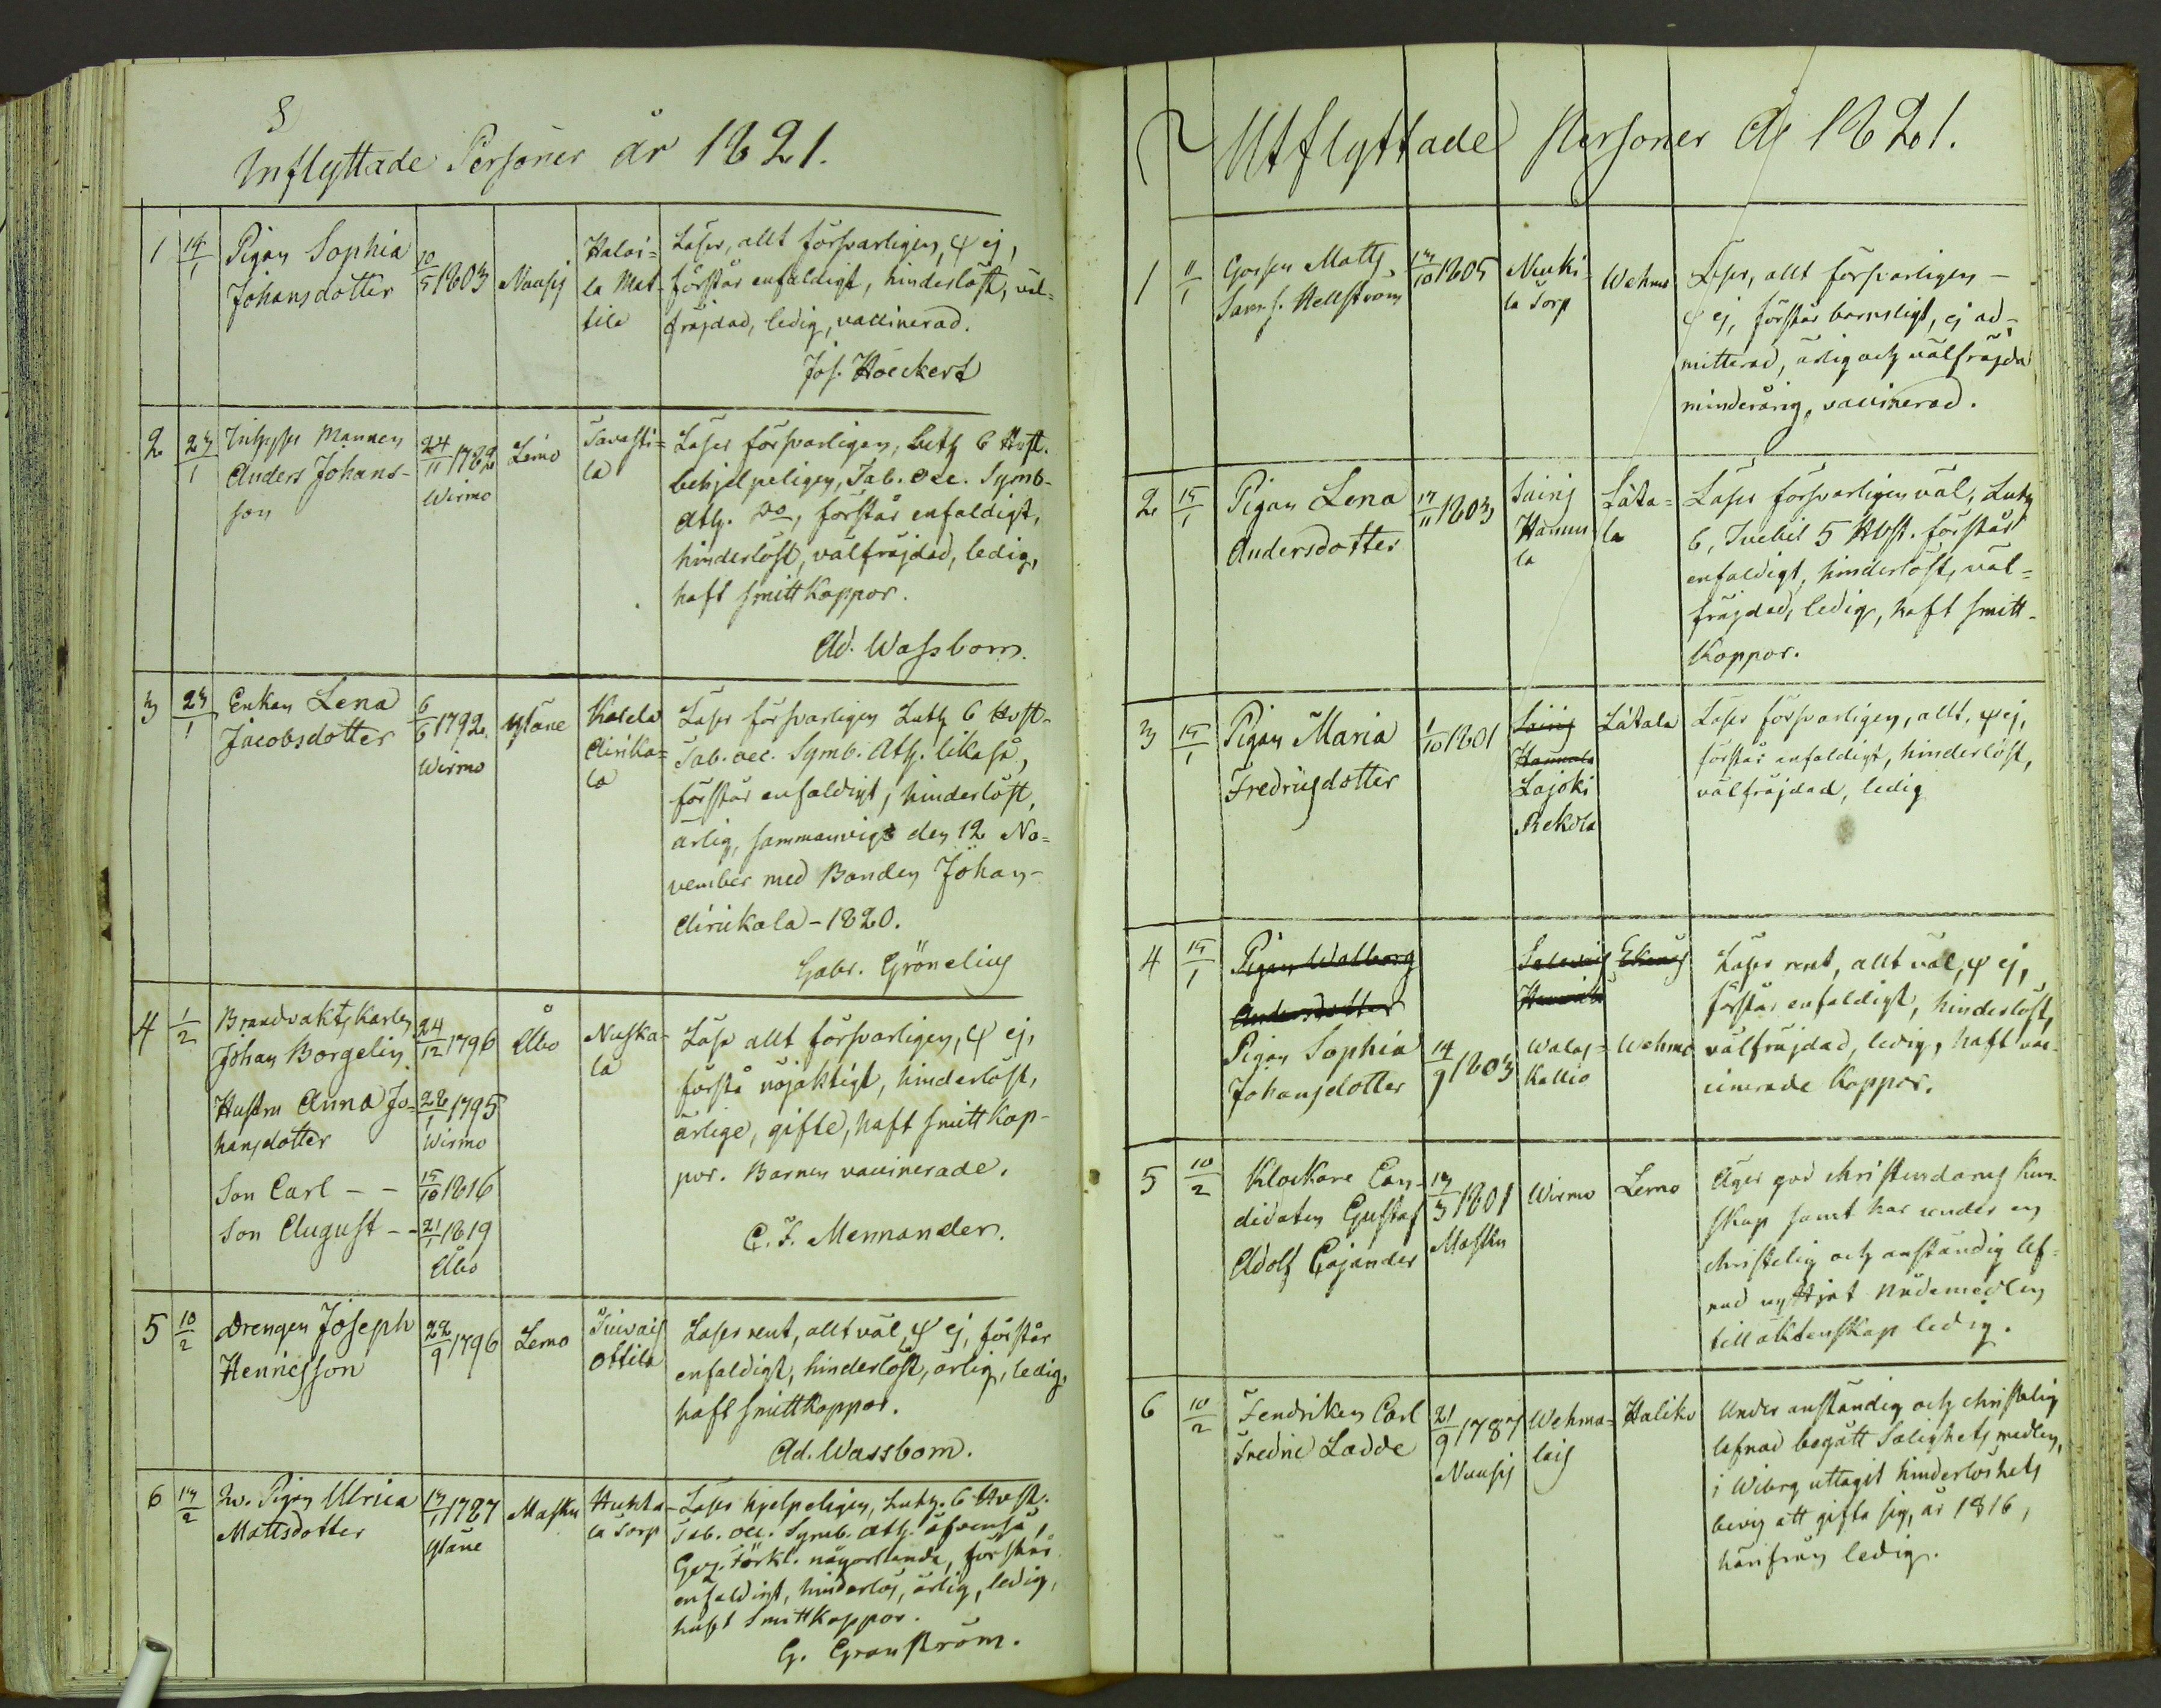 8
Inflyttade Personer år 1821.
1 14/1 Pigan Sophia Johansdotter 10/5 1803 Nousis
Haloi=
la Mat-
tila
Läser, allt försvarligen, ψ ej,
förstår enfaldigt, hinderlöst, väl-
fräjdad, ledig, vaccinerad.
Jos. Höeckert
2 23/1 Inhyses Mannen
Anders Johans-
son
24/11 1782
Wirmo
Lemo
Tavasti=
la
Läser försvarligen, Luth 6 Hvst.
behjelpeligen, Tab. oec. Symb.
Ath. Do, förstår enfaldigt,
hinderlöst, välfräjdad, ledig,
haft smittkoppor.
Ad. Wassbom.
3 23/1 Enkan Lena
Jacobsdotter
6/6 1792
Wirmo
Yläne
Karela
Airika=
la
Läser försvarligen Luth 6 Hvst-
Tab. oec. Symb. Ath. likaså,
förstår enfaldigt, hinderlöst,
ärlig, sammanvigd den 12 No=
vember med Bonden Johan-
Airikala - 1820.
Gabr. Grönelius
4 1/2 Brandvakts Karlen
Johan Borgelin
24/12 1796
Åbo
Nuska-
la
Hustru Anna Jo-
hansdotter
28/1 1795
Wirmo
Son Carl - - 15/10 1816
Son August - - 21/1 1819
Åbo
Läse allt försvarligen, ψ ej,
förstå nöjaktigt, hinderlöst,
ärlige, gifte, haft smittkop-
por. Barnen vaccinerade.
C. F. Mennander.
5 10/2 Drengen Joseph
Henricsson
22/9 1796
Lemo
Ottila
Läser rent, allt väl, ψ ej, förstår
enfaldigt, hinderlöst, ärlig, ledig,
haft smittkoppor.
Ad. Wassbom.
6 17/2 Pigan Ulrica
Mattsdotter
1787
Yläne
Masku
Huhta-
la Torp
Läser hjelpeligen, Luth. 6 Hvst.
Tab. oec. Symb. Ath. äfvenså,
Gez. Förkl. någorlunda, förstår
enfaldigt, hinderlös, ärlig, ledig,
haft smittkoppor.
G. Granström.
Utflyttade Personer År 1821.
1 11/1 Gossen Matts
Sam. s. Hellström
13/10 1805
Nuuki-
la Torp
Wehmo
Läser, allt försvarligen -
ψ ej, förstår barnsligt, ej ad-
mitterad, ärlig och välfräjdad
minderårig, vaccinerad.
2 15/1 Pigan Lena
Andersdotter
17/11 1803
Saris
Hannu
la
Låta=
la
Läser försvarligen väl, Luth
6, Svebil 5 Hvst. förstår
enfaldigt, hinderlöst, väl=
fräjdad, ledig, haft smitt-
koppor.
3 15/1 Pigan Maria
Fredricsdotter
1/10 1801
Saris
Hannula
Lajoki
Rekola
Låtala
Läser försvarligen, allt, ψ ej,
förstår enfaldigt, hinderlöst,
välfräjdad, ledig
4 15/1 Pigan Walborg
Andersdotter
Pigan Sophia
Johansdotter
14/9 1803
Walas=
kallio
Wehmo
Läser rent, allt väl, ψ ej,
förstår enfaldigt, hinderlöst,
välfräjdad, ledig, haft vac-
cinerade koppor.
5 10/2 Klockare Can-
didaten Gustaf
Adolf Cajander
13/3 1801
Masku
Wirmo
Lemo
Äger god christendoms kun-
skap samt har under en
christelig och anständig lef=
nad nyttjat Nådemedlen
till äktenskap ledig.
6 10/2 Fendriken Carl
Fredric Ladde
21/9 1787
Nousis
Wehma-
lais
Haliko
Under anständig och christelig
lefnad begått Salighetsmedlen,
i Wiborg uttagit hinderlöshets
bevis att gifta sig, år 1816,
härifrån ledig.